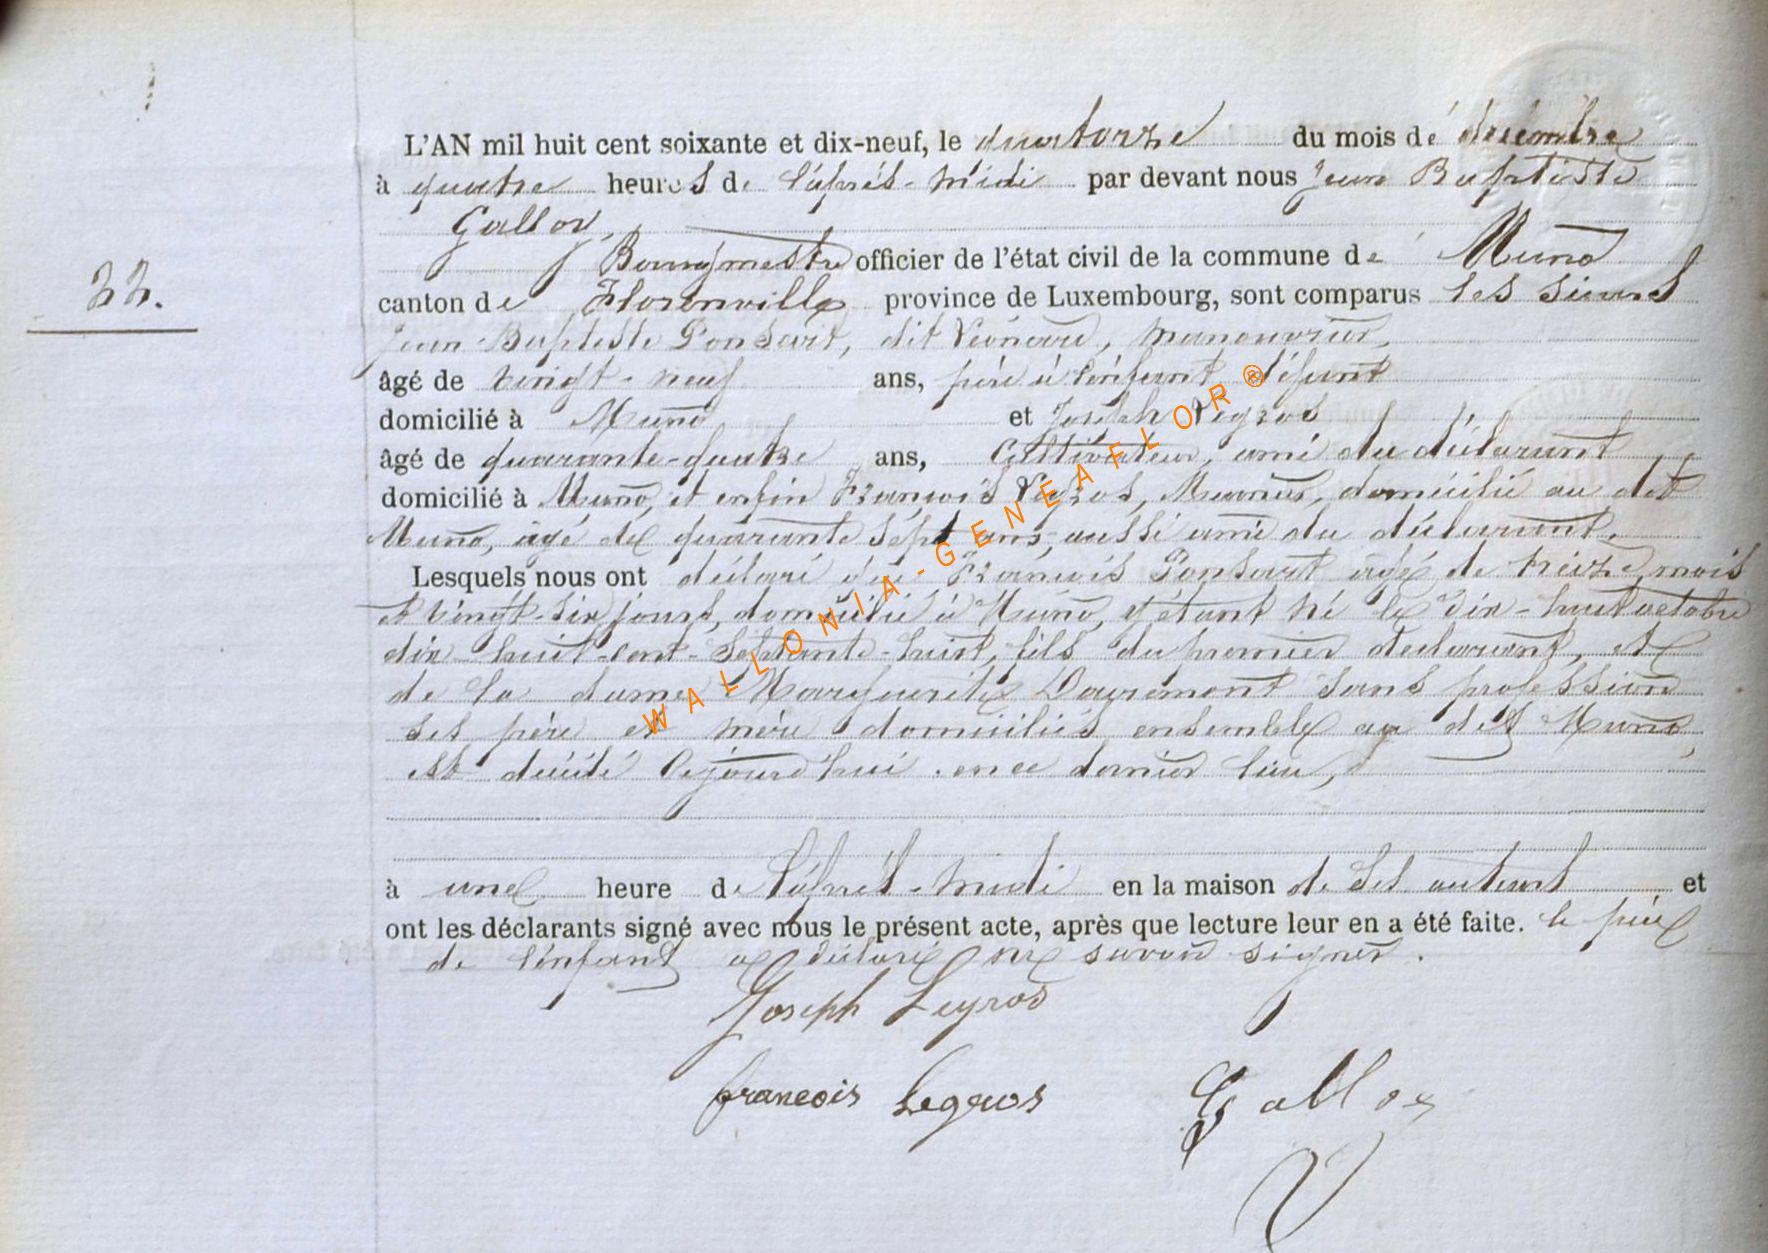 L'AN mil huit cent soixante et dix-neuf, le quatorze du mois de décembre
à quatre heures de l'après-midi par devant nous Jean Baptiste
Galloy,
Bourgmestre officier de l'état civil de la commune de Muno
22.
canton de Florenville province de Luxembourg, sont comparus les sieurs
Jean-Baptiste Ponsart, dit manouvrier,
âgé de vingt-neuf ans, père à l'enfant défunt
domicilié à Muno et Joseph Legros
âgé de quarante-quatre ans, Cultivateur, ami du déclarant
domicilié à Muno, et enfin François Legros, domicilié au dit
Muno, âgé de quarante sept ans, aussi ami du déclarant.
Lesquels nous ont déclaré que François Ponsart âgé de treize mois
et vingt-six jours, domicilié à Muno, y étant né le dix-huit octobre
dix-huit-cent-septante-huit, fils du premier déclarant, et
de la dame Marguerite sans profession
ses père et mère domiciliés ensemble au dit Muno,
est décédé cejourd'hui en ce dernier lieu,
à une heure de l'après-midi en la maison de ses auteurs et
ont les déclarants signé avec nous le présent acte, après que lecture leur en a été faite. le père
de l'enfant a déclaré ne savoir signer.
Joseph Legros
francois Legros Galloy
WALLONIA-GENEAFLOR®